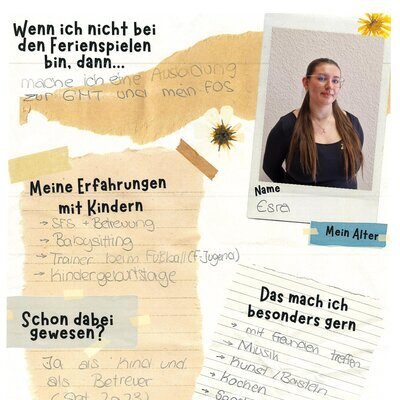 Wenn ich nicht bei
den Ferienspielen
bin, dann...
mache ich eine Ausbildung
zur GMT und mein FOS
Name
Esra
Mein Alter
Meine Erfahrungen
mit Kindern
→ SFS + Betreuung
→ Babysitting
→ Trainer beim Fußball (F-Jugend)
→ Kindergeburtstage
Schon dabei
gewesen?
Ja als Kind und
als Betreuer
Das mach ich
besonders gern
→ mit Freunden treffen
→ Musik
→ Kunst / Basteln
→ Kochen